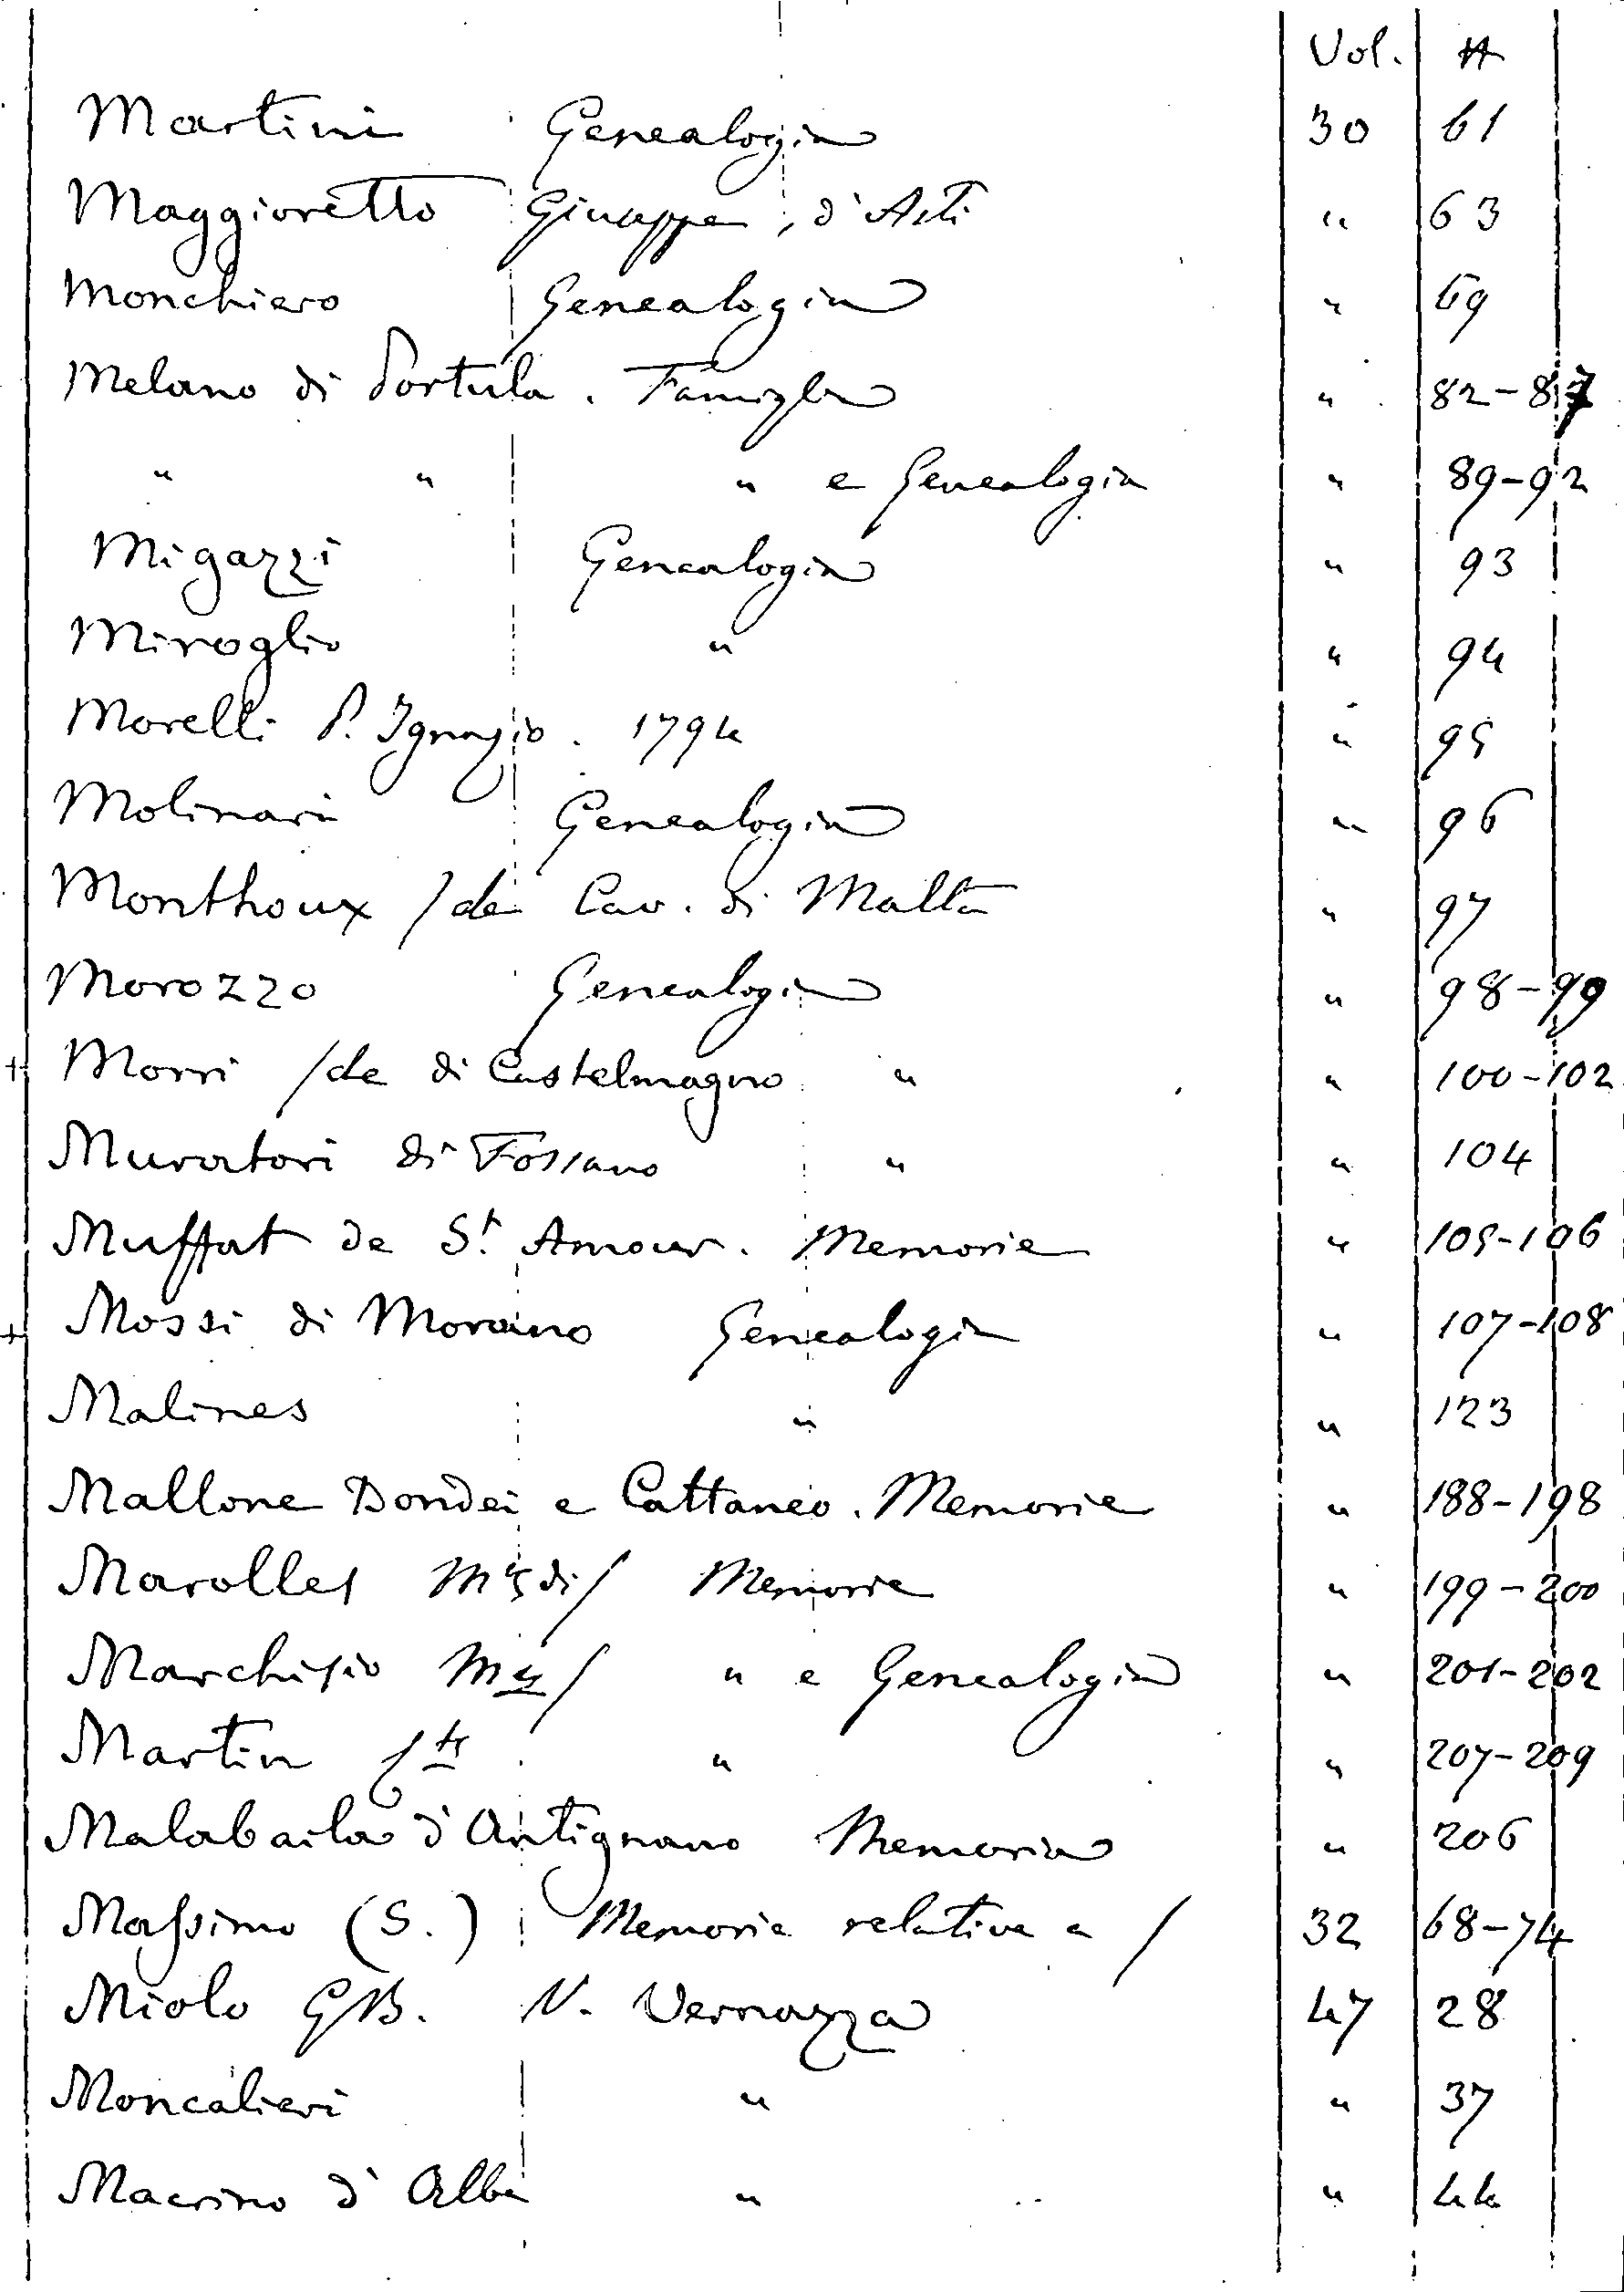 Vol. #
Martini Genealogia 30 61
Maggioretto Giuseppe, d'Asti " 63
Monchiero Genealogia " 69
Melano di Portula. Famiglia " 82-87
" " " e Genealogia " 89-92
Migazzi Genealogia " 93
Miroglio " " 94
Morelli P. Ignazio. 1794 " 95
Molinari Genealogia " 96
Monthoux /de Cav. di Malta " 97
Morozzo Genealogia " 98-99
+ Morri /de di Castelmagno " " 100-102
Muratori di Fossano " " 104
Muffat de St. Amour. Memorie " 105-106
+ Mossi di Morano Genealogia " 107-108
Malines " " 123
Mallone Dondei e Cattaneo. Memorie " 188-198
Marolles Mse di/ Memorie " 199-200
Marchisio / " e Genealogia " 201-202
Martin " " 207-209
Malabaila d'Antignano Memoria " 206
Massimo (S.) Memorie relative a / 32 68-74
Miolo GB. V. Vernazza 47 28
Moncalieri " " 37
Macrino d'Alba " " 44